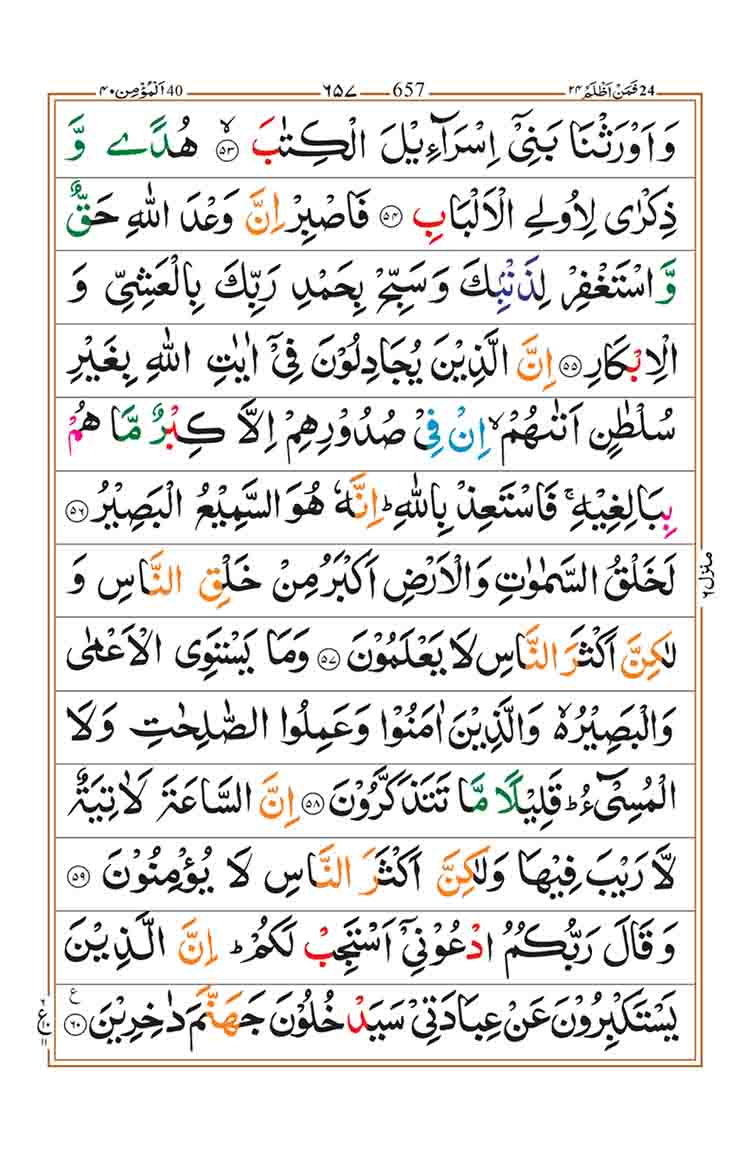 24 فَمَنْ اَظْلَمُ ٢٤ 657 ٦٥٧ 40 اَلْمُؤْمِن ٤٠
وَ اَوْرَثْنَا بَنِیْۤ اِسْرَآءِیْلَ الْكِتٰبَ ۙ۝۵۳ هُدًی وَّ
ذِكْرٰی لِاُولِی الْاَلْبَابِ ۝۵۴ فَاصْبِرْ اِنَّ وَعْدَ اللّٰهِ حَقٌّ
وَّ اسْتَغْفِرْ لِذَنْۢبِكَ وَ سَبِّحْ بِحَمْدِ رَبِّكَ بِالْعَشِیِّ وَ
الْاِبْكَارِ ۝۵۵ اِنَّ الَّذِیْنَ یُجَادِلُوْنَ فِیْۤ اٰیٰتِ اللّٰهِ بِغَیْرِ
سُلْطٰنٍ اَتٰىهُمْ ۙ اِنْ فِیْ صُدُوْرِهِمْ اِلَّا كِبْرٌ مَّا هُمْ
بِبَالِغِیْهِ ۚ فَاسْتَعِذْ بِاللّٰهِ ؕ اِنَّهٗ هُوَ السَّمِیْعُ الْبَصِیْرُ ۝۵۶
لَخَلْقُ السَّمٰوٰتِ وَ الْاَرْضِ اَكْبَرُ مِنْ خَلْقِ النَّاسِ وَ
لٰكِنَّ اَكْثَرَ النَّاسِ لَا یَعْلَمُوْنَ ۝۵۷ وَ مَا یَسْتَوِی الْاَعْمٰی
وَ الْبَصِیْرُ ۙ۬ وَ الَّذِیْنَ اٰمَنُوْا وَ عَمِلُوا الصّٰلِحٰتِ وَ لَا
الْمُسِیْٓءُ ؕ قَلِیْلًا مَّا تَتَذَكَّرُوْنَ ۝۵۸ اِنَّ السَّاعَةَ لَاٰتِیَةٌ
لَّا رَیْبَ فِیْهَا وَ لٰكِنَّ اَكْثَرَ النَّاسِ لَا یُؤْمِنُوْنَ ۝۵۹
وَ قَالَ رَبُّكُمُ ادْعُوْنِیْۤ اَسْتَجِبْ لَكُمْ ؕ اِنَّ الَّذِیْنَ
یَسْتَكْبِرُوْنَ عَنْ عِبَادَتِیْ سَیَدْخُلُوْنَ جَهَنَّمَ دٰخِرِیْنَ ۝۶۰ ع
منزل ٦
٦ ع ١٠ ١١